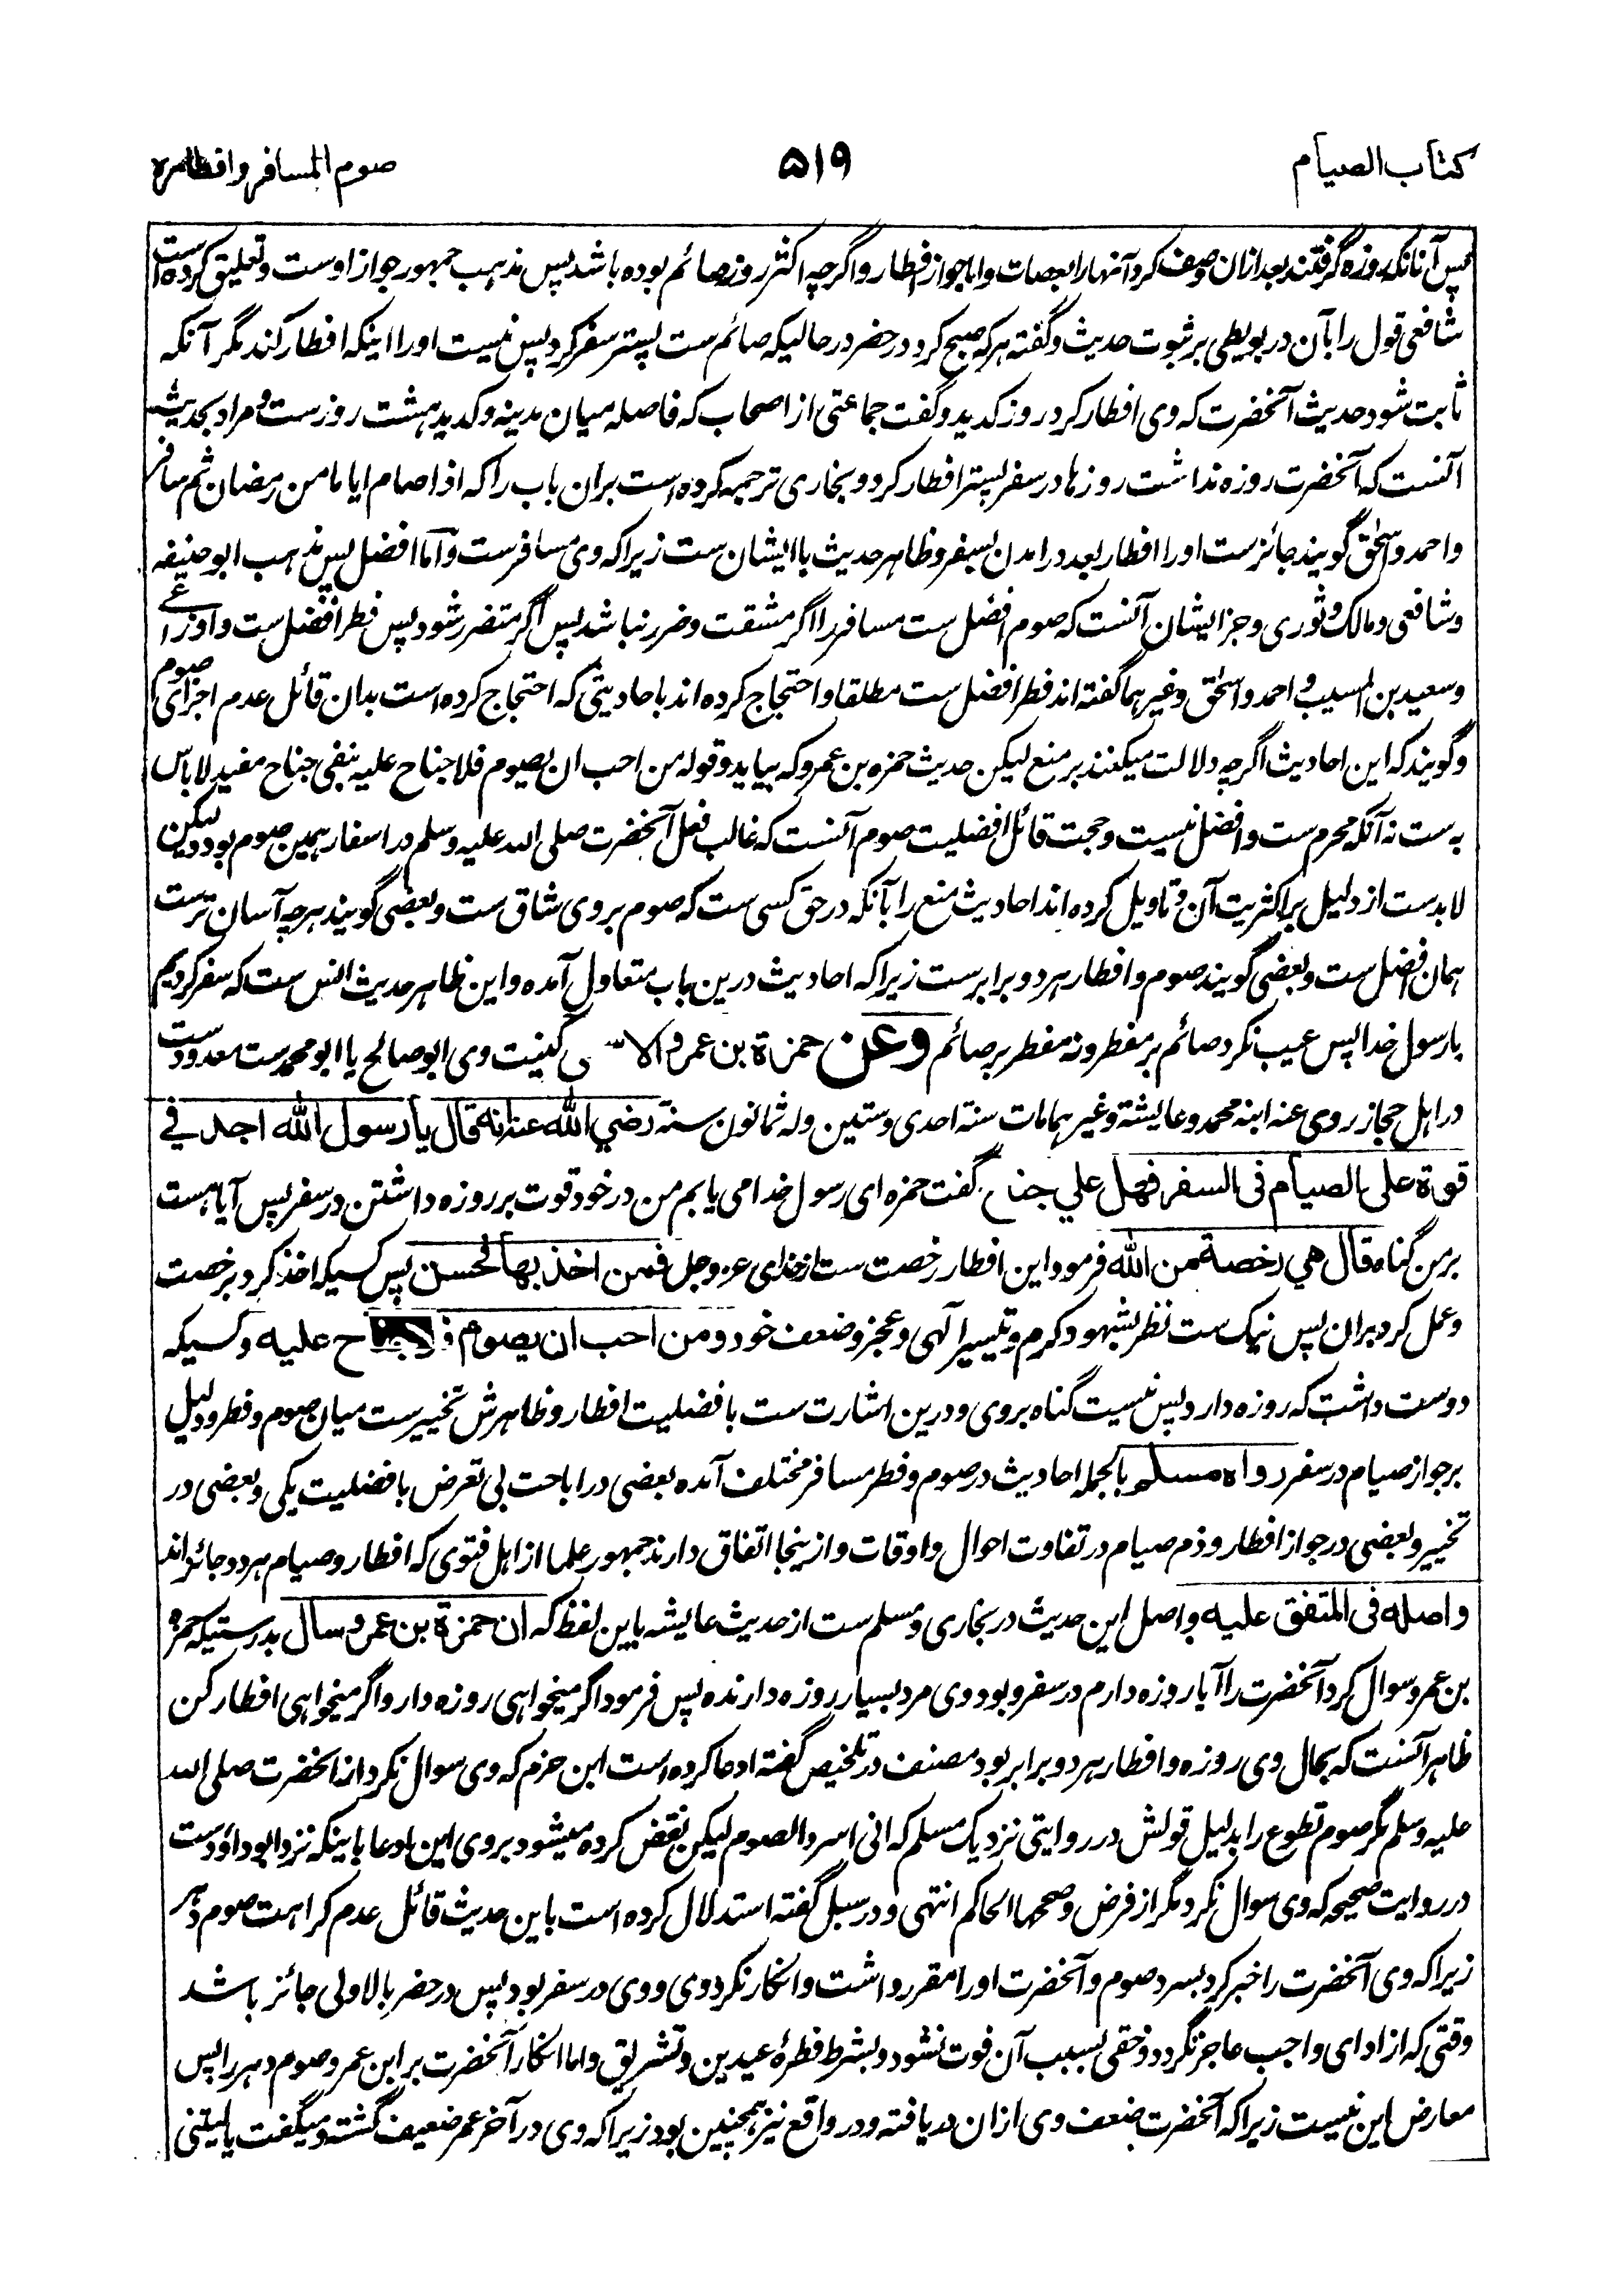 کتاب الصیام
۵۱۹
صوم المسافر وافطاره
پس آنانکه روزه گرفتند بعد ازان وصف کرد آنها را بعصات واما جواز افطار واگرچه اکثر روز صائم بوده باشد پس مذهب جمهور جواز اوست وتعلیق کرده است
شافعی قول را بآن در بویطی بر ثبوت حدیث وگفته هر که صبح کرد در حضر در حالیکه صائم ست پستر سفر کرد پس نیست او را اینکه افطار کند مگر آنکه
ثابت شود حدیث آنحضرت که وی افطار کرد روز کدید وگفت جماعتی از اصحاب که فاصله میان مدینه وکدید هشت روزست ومراد بحدیث
آنست که آنحضرت روزه نداشت روزها در سفر پستر افطار کرد وبخاری ترجمه کرده است بران باب را که اذا صام ایاما من رمضان ثم سافر
واحمد واسحق گویند جائزست او را افطار بعد درامدن بسفر وظاهر حدیث با ایشان ست زیرا که وی مسافرست واما افضل پس مذهب ابوحنیفه
وشافعی ومالک وثوری وجز ایشان آنست که صوم افضل ست مسافر را اگر مشقت وضرر نباشد پس اگر متضرر شود پس فطر افضل ست واوزاعے
وسعید بن المسیب واحمد واسحق وغیرهما گفته اند فطر افضل ست مطلقا واحتجاج کرده اند باحادیثی که احتجاج کرده است بدان قائل عدم اجزای صوم
وگویند که این احادیث اگرچه دلالت میکنند بر منع لیکن حدیث حمزه بن عمرو که بیاید وقوله من احب ان یصوم فلا جناح علیه بنفی جناح مفید لاباس
به ست نه آنکه محرم ست وافضل نیست وحجت قائل افضلیت صوم آنست که غالب فعل آنحضرت صلی الله علیه وسلم در اسفار همین صوم بود لیکن
لابدست از دلیل بر اکثریت آن وتاویل کرده اند احادیث منع را بآنکه در حق کسی ست که صوم بر وی شاق ست وبعضی گویند هرچه آسان ترست
همان افضل ست وبعضی گویند صوم وافطار هر دو برابرست زیرا که احادیث درین باب متعادل آمده واین ظاهر حدیث انس ست که سفر کردیم
با رسول خدا پس عیب نکرد صائم بر مفطر ونه مفطر بر صائم وعن حمزة بن عمرو کنیت وی ابو صالح یا ابو محمدست معدودست
در اهل حجاز روی عنه ابنه محمد وعایشة وغیرهما مات سنة احدی وستین وله ثمانون سنة رضي الله عنه انه قال يا رسول الله اجد في
قوة على الصيام فى السفر فهل علي جناح گفت حمزه ای رسول خدا می یابم من در خود قوت بر روزه داشتن در سفر پس آیا هست
بر من گناه قال هي رخصة من الله فرمود این افطار رخصت ست از خدای عز وجل فمن اخذ بها فحسن پس کسیکه اخذ کرد برخصت
وعمل کرد بران پس نیک ست نظر بشهود کرم وتیسیر آلهی وعجز وضعف خود ومن احب ان يصوم فلا جناح عليه وکسیکه
دوست داشت که روزه دارد پس نیست گناه بر وی ودرین اشارت ست بافضلیت افطار وظاهرش تخییرست میان صوم وفطر ودلیل
بر جواز صیام در سفر رواه مسلم بالجمله احادیث در صوم وفطر مسافر مختلف آمده بعضی در اباحت بی تعرض بافضلیت یکی وبعضی در
تخییر وبعضی در جواز افطار وذم صیام در تفاوت احوال واوقات وازینجا اتفاق دارند جمهور علما از اهل فتوی که افطار وصیام هر دو جائز اند
واصله فى المتفق عليه واصل این حدیث در بخاری ومسلم ست از حدیث عایشه باین لفظ که ان حمزة بن عمرو سال بدرستیکه حمزه
بن عمرو سوال کرد آنحضرت را آیا روزه دارم در سفر وبود وی مرد بسیار روزه دارنده پس فرمود اگر میخواهی روزه دار واگر میخواهی افطار کن
ظاهر آنست که بحال وی روزه وافطار هر دو برابر بود مصنف در تلخیص گفته ادعا کرده است ابن حزم که وی سوال نکرد از آنحضرت صلی الله
علیه وسلم مگر صوم تطوع را بدلیل قولش در روایتی نزدیک مسلم که انی اسرد الصوم لیکن نقض کرده میشود بر وی این ادعا باینکه نزد ابوداؤدست
در روایت صحیحه که وی سوال نکرد مگر از فرض وصححها الحاکم انتهی ودر سبل گفته استدلال کرده است باین حدیث قائل عدم کراهت صوم دهر
زیرا که وی آنحضرت را خبر کرد بسرد صوم وآنحضرت او را مقرر داشت وانکار نکرد وی ووی در سفر بود پس در حضر بالاولی جائز باشد
وقتی که از ادای واجب عاجز نگردد وحقی بسبب آن فوت نشود وبشرط فطرهٔ عیدین وتشریق واما انکار آنحضرت بر ابن عمرو صوم دهر را پس
معارض این نیست زیرا که آنحضرت ضعف وی ازان دریافته ودر واقع نیز همچنین بود زیرا که وی در آخر عمر ضعیف گشته ومیگفت یالیتنی